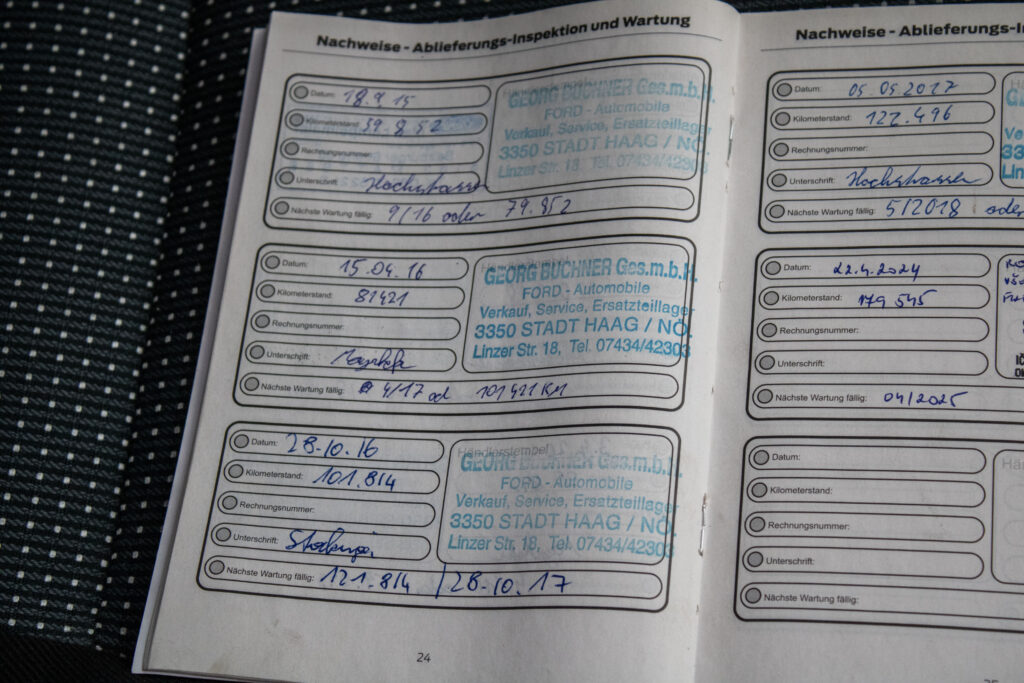 Nachweise - Ablieferungs-Inspektion und Wartung
Datum: 18.9.15
Kilometerstand: 59.852
Rechnungsnummer:
Unterschrift:
Nächste Wartung fällig: 9/16 oder 79.852
GEORG BUCHNER Ges.m.b.H.
FORD - Automobile
Verkauf, Service, Ersatzteillager
3350 STADT HAAG / NÖ
Linzer Str. 18, Tel. 07434/42303
Datum: 15.04.16
Kilometerstand: 81421
Rechnungsnummer:
Unterschrift:
Nächste Wartung fällig: 4/17 od 101421 KM
GEORG BUCHNER Ges.m.b.H.
FORD - Automobile
Verkauf, Service, Ersatzteillager
3350 STADT HAAG / NÖ
Linzer Str. 18, Tel. 07434/42303
Datum: 28.10.16
Kilometerstand: 101.814
Rechnungsnummer:
Unterschrift:
Nächste Wartung fällig: 121.814 / 28.10.17
Händlerstempel
GEORG BUCHNER Ges.m.b.H.
FORD - Automobile
Verkauf, Service, Ersatzteillager
3350 STADT HAAG / NÖ
Linzer Str. 18, Tel. 07434/42303
24
Nachweise - Ablieferungs-I
Datum: 05.05.2017
Kilometerstand: 122.496
Rechnungsnummer:
Unterschrift:
Nächste Wartung fällig: 5/2018 oder
Datum: 22.4.2024
Kilometerstand: 179 545
Rechnungsnummer:
Unterschrift:
Nächste Wartung fällig: 04/2025
Datum:
Kilometerstand:
Rechnungsnummer:
Unterschrift:
Nächste Wartung fällig: